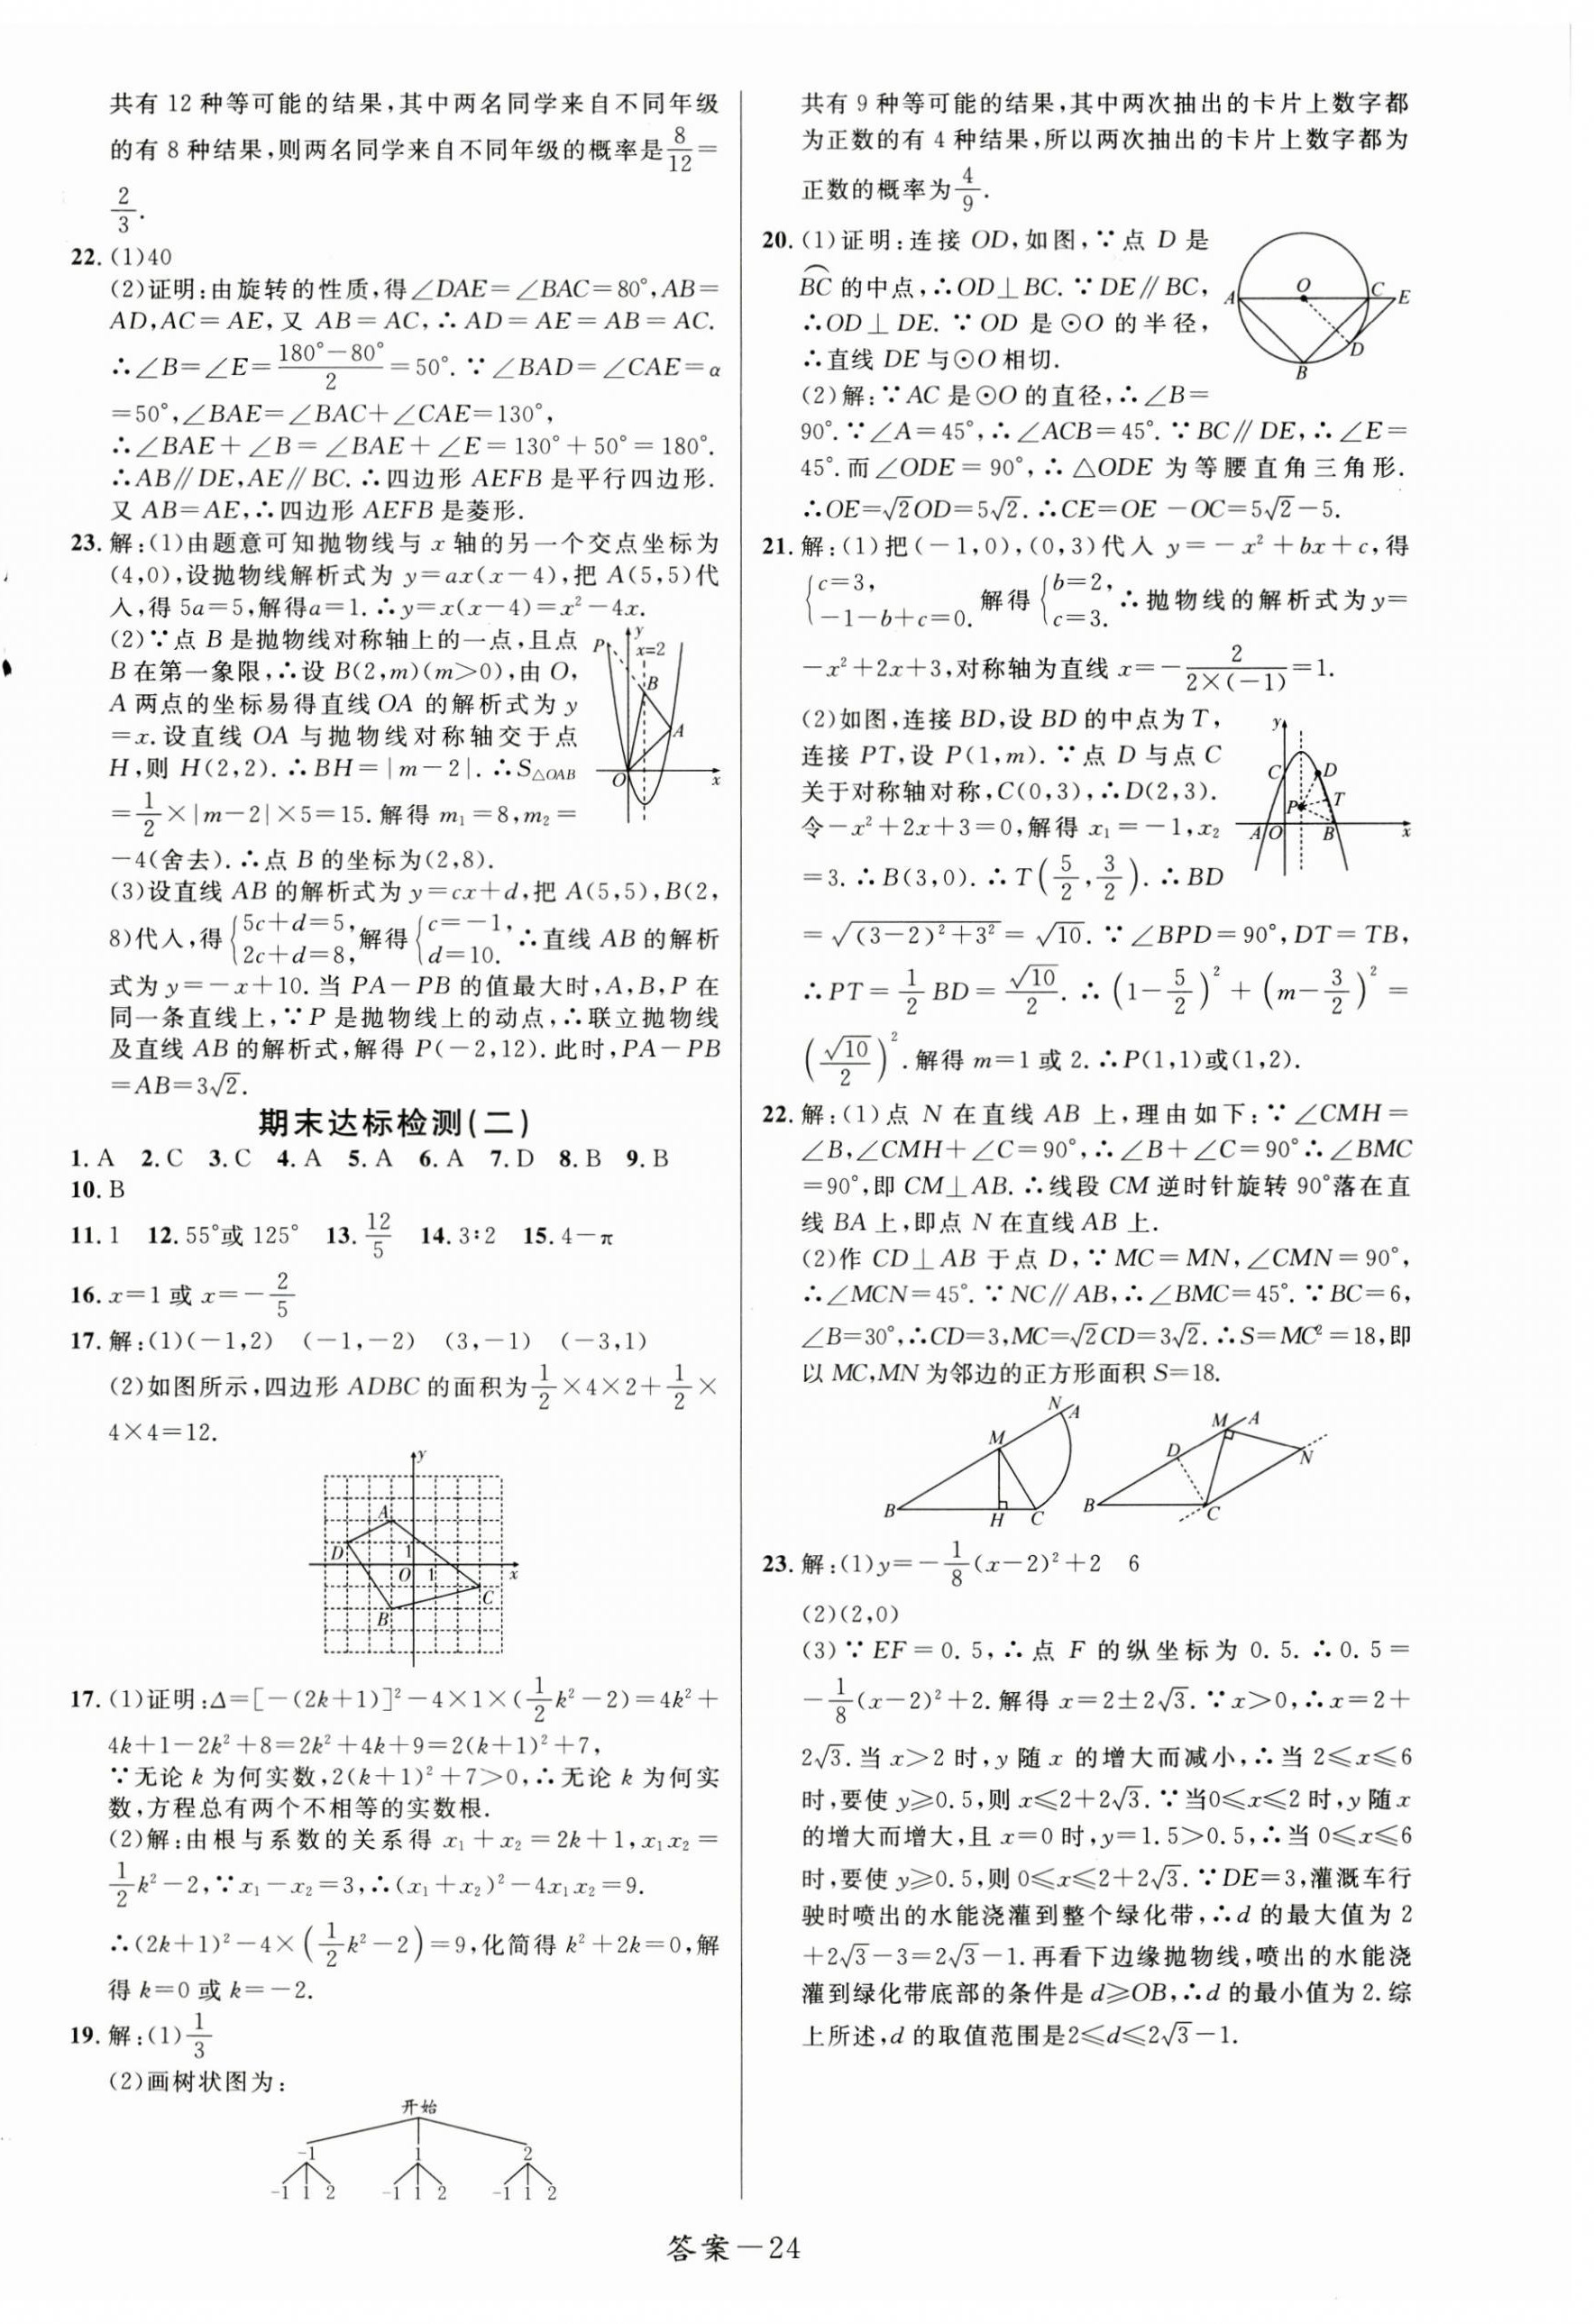 共有 12 种等可能的结果,其中两名同学来自不同年级
的有 8 种结果,则两名同学来自不同年级的概率是8/12=
2/3.
22.(1)40
(2)证明:由旋转的性质,得∠DAE=∠BAC=80°,AB=
AD,AC=AE,又 AB=AC,∴AD=AE=AB=AC.
∴∠B=∠E=(180°-80°)/2=50°.∵∠BAD=∠CAE=α
=50°,∠BAE=∠BAC+∠CAE=130°,
∴∠BAE+∠B=∠BAE+∠E=130°+50°=180°.
∴AB∥DE,AE∥BC.∴四边形 AEFB 是平行四边形.
又 AB=AE,∴四边形 AEFB 是菱形.
23.解:(1)由题意可知抛物线与 x 轴的另一个交点坐标为
(4,0),设抛物线解析式为 y=ax(x-4),把 A(5,5)代
入,得 5a=5,解得a=1.∴y=x(x-4)=x²-4x.
(2)∵点 B 是抛物线对称轴上的一点,且点
B 在第一象限,∴设 B(2,m)(m>0),由 O,
A 两点的坐标易得直线 OA 的解析式为 y
=x.设直线 OA 与抛物线对称轴交于点
H,则 H(2,2).∴BH=|m-2|.∴S△OAB
=1/2×|m-2|×5=15.解得 m₁=8,m₂=
-4(舍去).∴点 B 的坐标为(2,8).
P y x=2 B A O x
(3)设直线 AB 的解析式为 y=cx+d,把 A(5,5),B(2,
8)代入,得{5c+d=5, 2c+d=8,解得{c=-1, d=10.∴直线 AB 的解析
式为 y=-x+10.当 PA-PB 的值最大时,A,B,P 在
同一条直线上,∵P 是抛物线上的动点,∴联立抛物线
及直线 AB 的解析式,解得 P(-2,12).此时,PA-PB
=AB=3√2.
期末达标检测(二)
1.A 2.C 3.C 4.A 5.A 6.A 7.D 8.B 9.B
10.B
11.1 12.55°或 125° 13.12/5 14.3∶2 15.4-π
16.x=1 或 x=-2/5
17.解:(1)(-1,2) (-1,-2) (3,-1) (-3,1)
(2)如图所示,四边形 ADBC 的面积为1/2×4×2+1/2×
4×4=12.
y
A
D 1
O 1 x
C
B
17.(1)证明:Δ=[-(2k+1)]²-4×1×(1/2k²-2)=4k²+
4k+1-2k²+8=2k²+4k+9=2(k+1)²+7,
∵无论 k 为何实数,2(k+1)²+7>0,∴无论 k 为何实
数,方程总有两个不相等的实数根.
(2)解:由根与系数的关系得 x₁+x₂=2k+1,x₁x₂=
1/2k²-2,∵x₁-x₂=3,∴(x₁+x₂)²-4x₁x₂=9.
∴(2k+1)²-4×(1/2k²-2)=9,化简得 k²+2k=0,解
得 k=0 或 k=-2.
19.解:(1)1/3
(2)画树状图为:
开始
-1 1 2
-1 1 2 -1 1 2 -1 1 2
共有 9 种等可能的结果,其中两次抽出的卡片上数字都
为正数的有 4 种结果,所以两次抽出的卡片上数字都为
正数的概率为4/9.
20.(1)证明:连接 OD,如图,∵点 D 是
⌒BC 的中点,∴OD⊥BC.∵DE∥BC,
∴OD⊥DE.∵OD 是⊙O 的半径,
∴直线 DE 与⊙O 相切.
O A C E D B
(2)解:∵AC 是⊙O 的直径,∴∠B=
90°.∵∠A=45°,∴∠ACB=45°.∵BC∥DE,∴∠E=
45°.而∠ODE=90°,∴△ODE 为等腰直角三角形.
∴OE=√2OD=5√2.∴CE=OE-OC=5√2-5.
21.解:(1)把(-1,0),(0,3)代入 y=-x²+bx+c,得
{c=3, -1-b+c=0.解得{b=2, c=3.∴抛物线的解析式为 y=
-x²+2x+3,对称轴为直线 x=-2/(2×(-1))=1.
(2)如图,连接 BD,设 BD 的中点为 T,
连接 PT,设 P(1,m).∵点 D 与点 C
关于对称轴对称,C(0,3),∴D(2,3).
令-x²+2x+3=0,解得 x₁=-1,x₂
=3.∴B(3,0).∴T(5/2,3/2).∴BD
y C D P T A O B x
=√((3-2)²+3²)=√10.∵∠BPD=90°,DT=TB,
∴PT=1/2BD=√10/2.∴(1-5/2)²+(m-3/2)²=
(√10/2)².解得 m=1 或 2.∴P(1,1)或(1,2).
22.解:(1)点 N 在直线 AB 上,理由如下:∵∠CMH=
∠B,∠CMH+∠C=90°,∴∠B+∠C=90°∴∠BMC
=90°,即 CM⊥AB.∴线段 CM 逆时针旋转 90°落在直
线 BA 上,即点 N 在直线 AB 上.
(2)作 CD⊥AB 于点 D,∵MC=MN,∠CMN=90°,
∴∠MCN=45°.∵NC∥AB,∴∠BMC=45°.∵BC=6,
∠B=30°,∴CD=3,MC=√2CD=3√2.∴S=MC²=18,即
以 MC,MN 为邻边的正方形面积 S=18.
N A M B H C
M A D N B C
23.解:(1)y=-1/8(x-2)²+2 6
(2)(2,0)
(3)∵EF=0.5,∴点 F 的纵坐标为 0.5.∴0.5=
-1/8(x-2)²+2.解得 x=2±2√3.∵x>0,∴x=2+
2√3.当 x>2 时,y 随 x 的增大而减小,∴当 2≤x≤6
时,要使 y≥0.5,则 x≤2+2√3.∵当0≤x≤2 时,y 随 x
的增大而增大,且 x=0 时,y=1.5>0.5,∴当 0≤x≤6
时,要使 y≥0.5,则 0≤x≤2+2√3.∵DE=3,灌溉车行
驶时喷出的水能浇灌到整个绿化带,∴d 的最大值为 2
+2√3-3=2√3-1.再看下边缘抛物线,喷出的水能浇
灌到绿化带底部的条件是 d≥OB,∴d 的最小值为 2.综
上所述,d 的取值范围是2≤d≤2√3-1.
答案—24